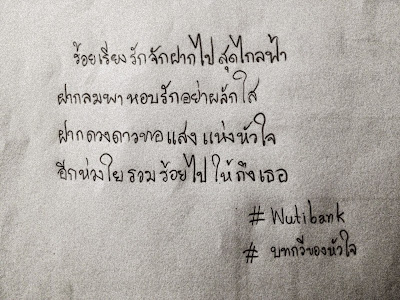 ร้อยเรียงรักจักฝากไปสุดไกลฟ้า
ฝากลมพาหอบรักอย่าผลักใส
ฝากดวงดาวทอแสงแห่งหัวใจ
อีกห่วงใยรวมร้อยไปให้ถึงเธอ
# Wutibank
# บทกวีของหัวใจ